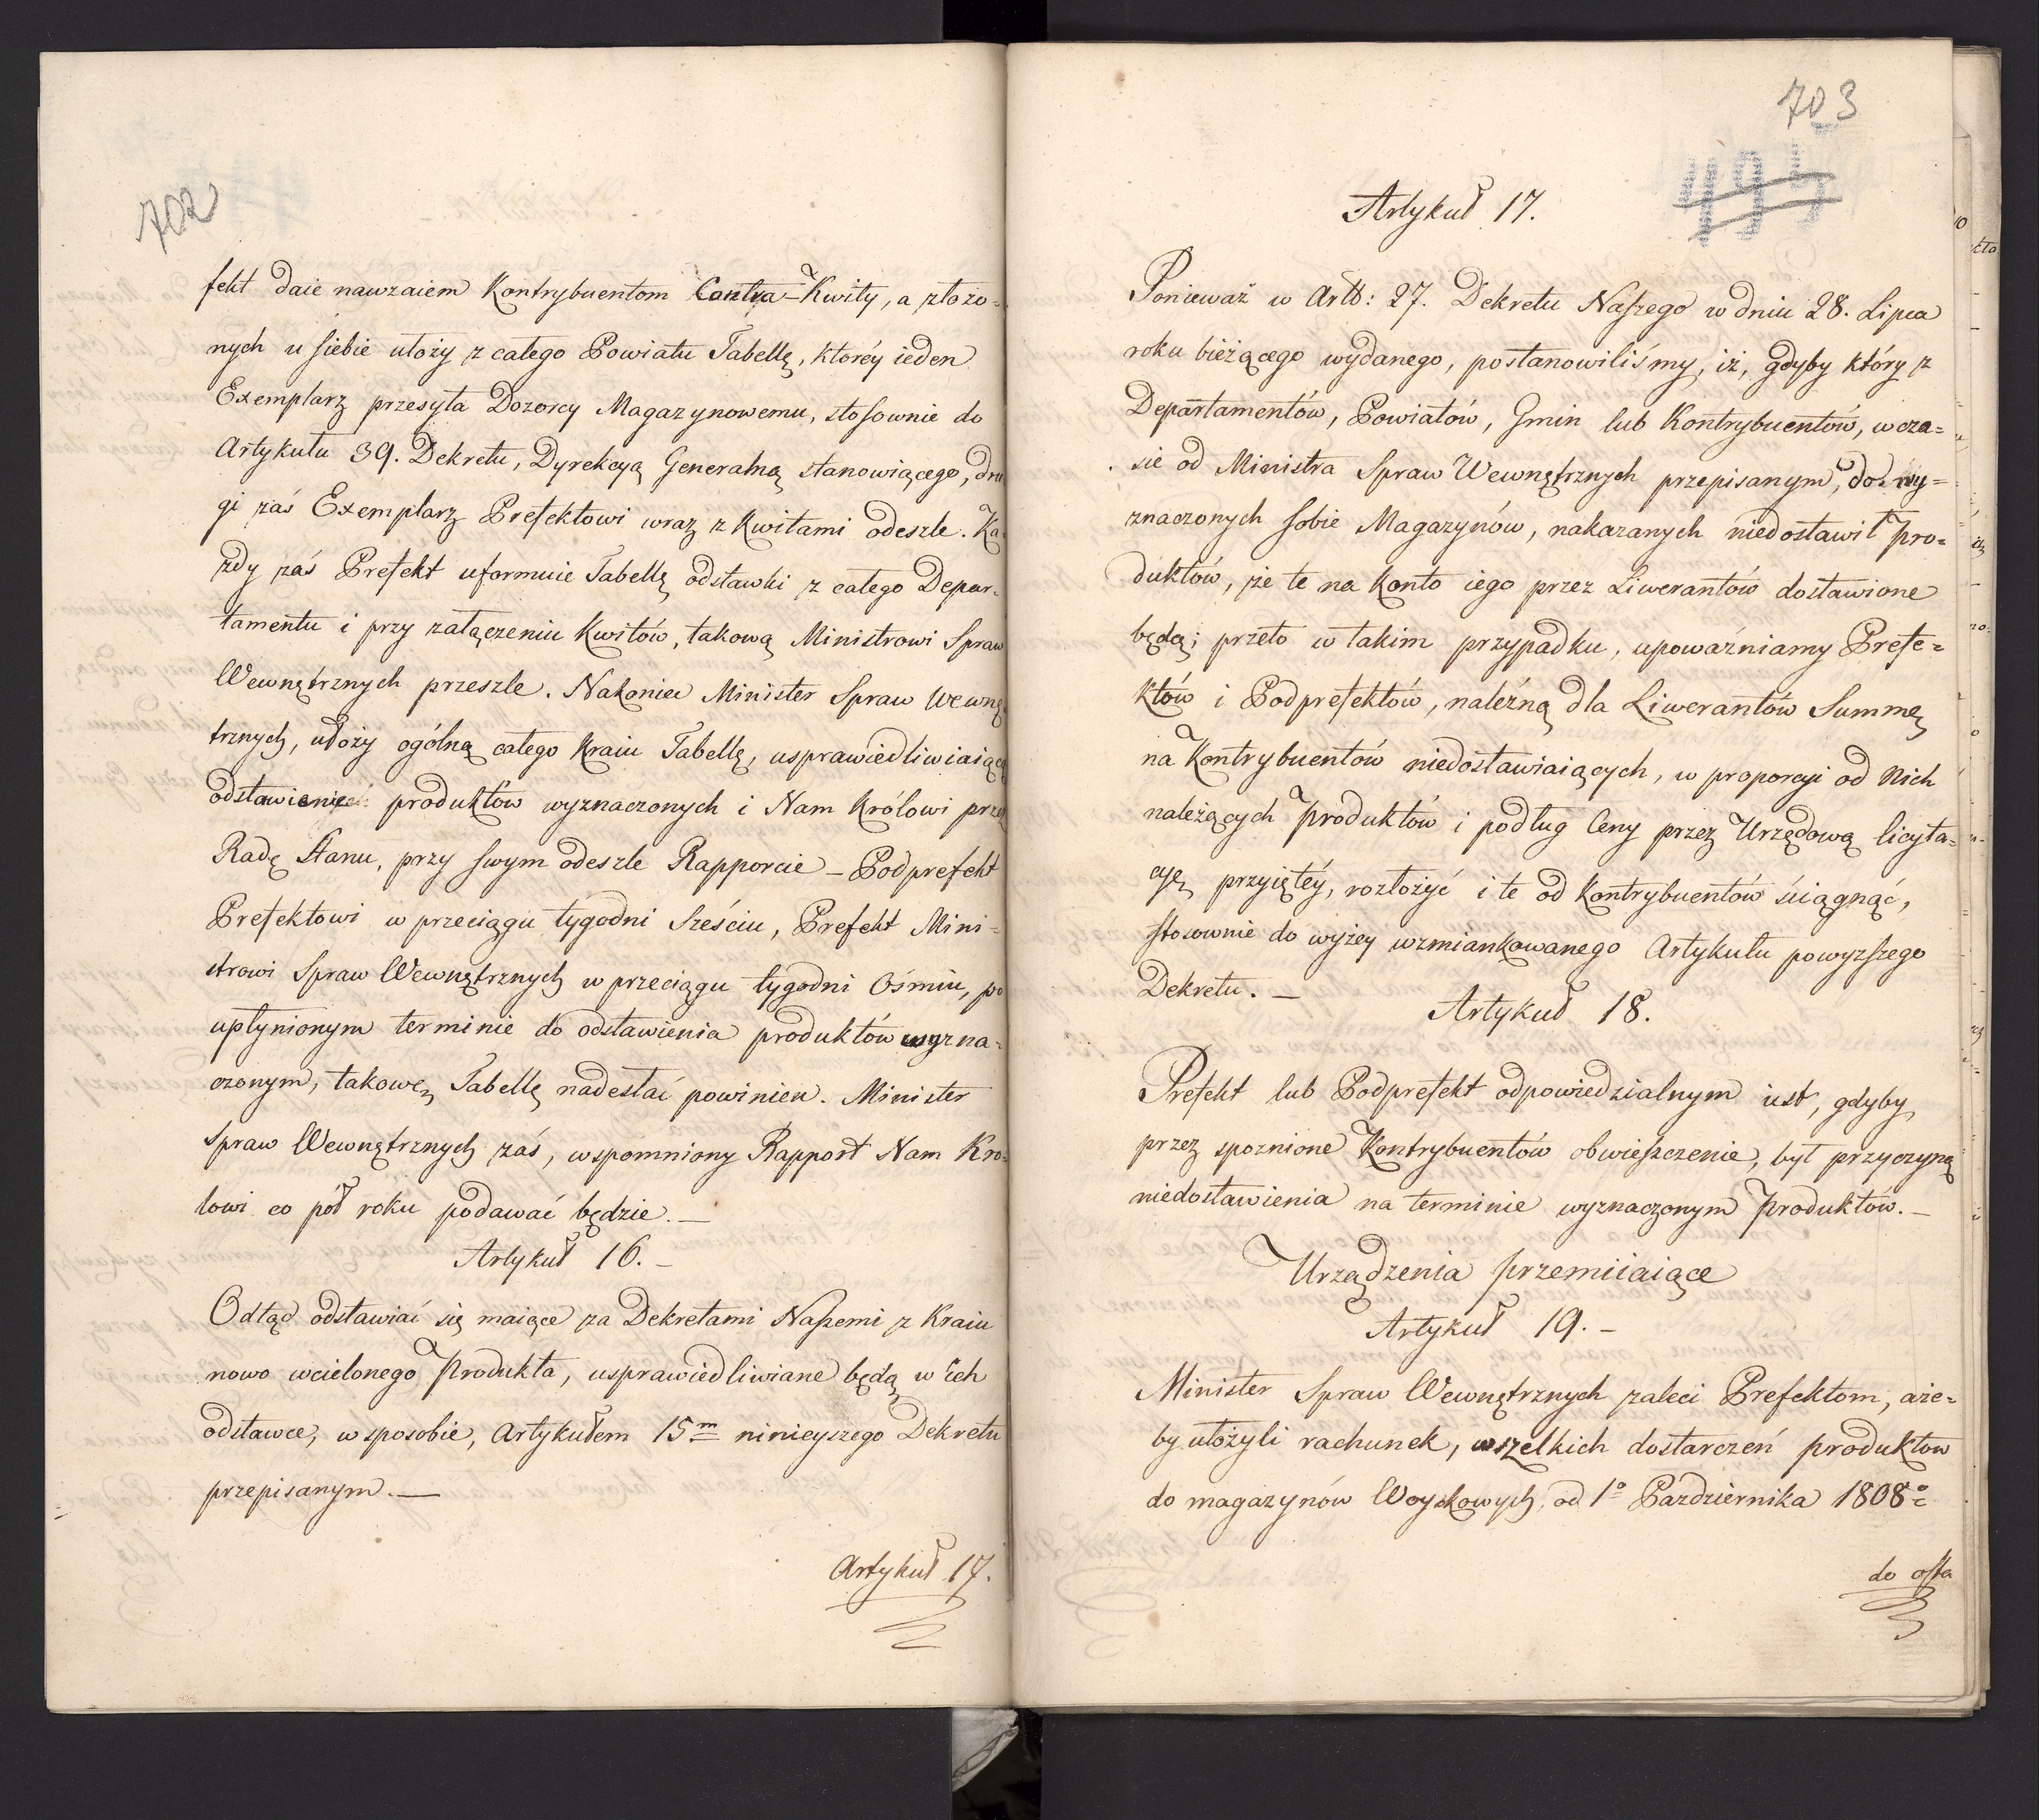 702
fekt daie nawzaiem Kontrybuentom Contra-Kwity, a złożo=
nych u siebie ułoży z całego Powiatu Tabellę, któréy ieden
Exemplarz przesyła Dozorcy Magazynowemu, stosownie do
Artykułu 39. Dekretu, Dyrekcyą Generalną stanowiącego, dru
gi zaś Exemplarz Prefektowi wraz z kwitami odeszle. Ka
żdy zaś Prefekt uformuie Tabellę odstawki z całego Depar=
tamentu i przy załączeniu Kwitów, takową Ministrowi Spraw
Wewnętrznych przeszle. Nakoniec Minister Spraw Wewnę
trznych, ułoży ogólną całego Kraiu Tabellę, usprawiedliwiaiącą
odstawienie produktów wyznaczonych i Nam Królowi przez
Radę Stanu, przy swym odeszle Rapporcie – Podprefekt
Prefektowi w przeciągu tygodni Sześciu, Prefekt Mini=
strowi Spraw Wewnętrznych w przeciągu tygodni Ośmiu, po
upłynionym terminie do odstawienia produktów wyzna=
czonym, takowę Tabellę nadesłać powinien. Minister
Spraw Wewnętrznych zaś, wspomniony Rapport Nam Kró=
lowi co pół roku podawać będzie. —
Artykuł 16. –
Odtąd odstawiać się maiące za Dekretami Naszemi z Kraiu
nowo wcielonego Produkta, usprawiedliwiane będą w ich
odstawce, w sposobie, Artykułem 15m ninieyszego Dekretu
przepisanym. —
Artykuł 17.
703
Artykuł 17.
Ponieważ w Artt: 27. Dekretu Naszego w dniu 28. Lipca
roku bieżącego wydanego, postanowiliśmy, iż, gdyby który z
Departamentów, Powiatów, Gmin lub Kontrybuentów, w cza=
sie od Ministra Spraw Wewnętrznych przepisanym, do wy=
znaczonych sobie Magazynów, nakazanych niedostawił Pro=
duktów, że te na konto iego przez Liwerantów dostawione
będą; przeto w takim przypadku, upoważniamy Prefe=
któw i Podprefektów, należną dla Liwerantów Summę
na Kontrybuentów niedostawiaiących, w proporcyi od Nich
należących Produktów i podług Ceny przez Urzędową licyta=
cyę przyiętéy, rozłożyć i te od Kontrybuentów ściągnąć,
stosownie do wyżey wzmiankowanego Artykułu powyższego
Dekretu. —
Artykuł 18.
Prefekt lub Podprefekt odpowiedzialnym iest, gdyby
przez spoznione Kontrybuentów obwieszczenie, był przyczyną
niedostawienia na terminie wyznaczonym Produktów. –
Urządzenia przemiiaiące
Artykuł 19. –
Minister Spraw Wewnętrznych zaleci Prefektom, aże=
by ułożyli rachunek, wszelkich dostarczeń produktow
do magazynów Woyskowych, od 1o Października 1808o
do osta